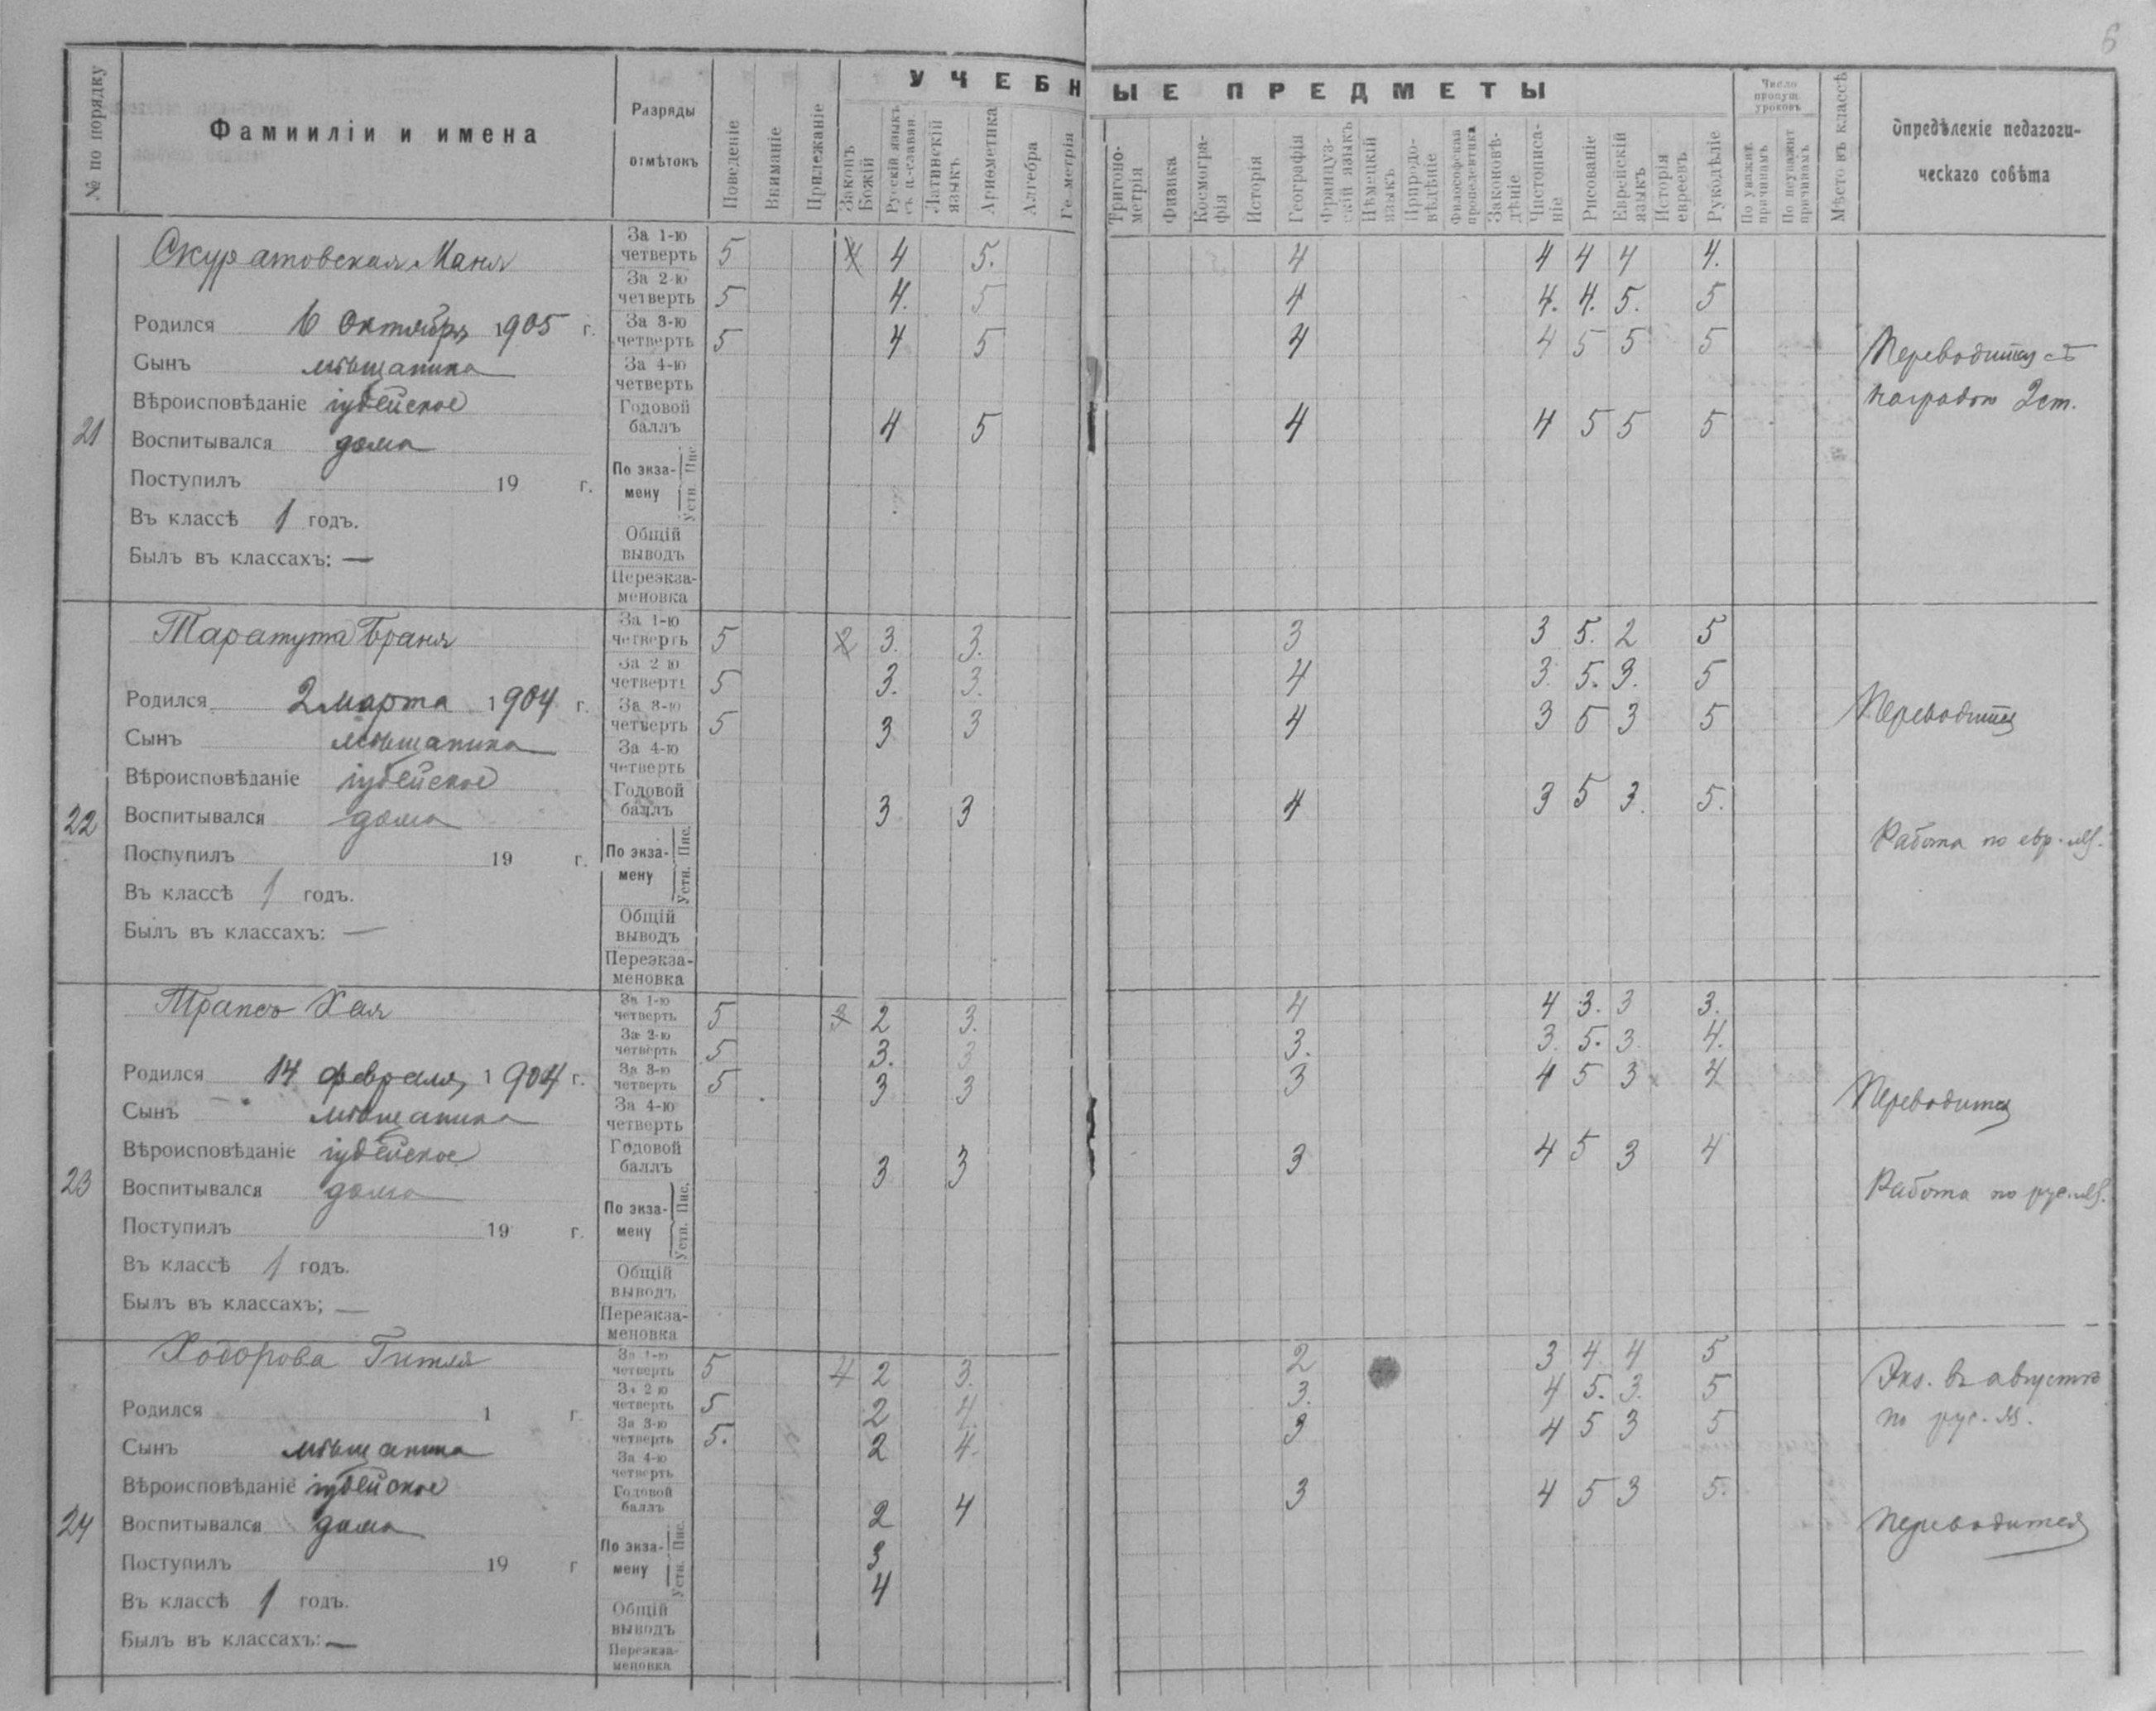 6
У Ч Е Б Н Ы Е П Р Е Д М Е Т Ы
№ по порядку
Фамииліи и имена
Разряды
отмѣтокъ
Поведеніе
Вниманіе
Прилежаніе
Законъ Божій
Русскій языкъ съ ц.-славян.
Латинскій языкъ
Ариѳметика
Алгебра
Геометрія
Тригоно-метрія
Физика
Космогра-фія
Исторія
Географія
Француз-скій языкъ
Нѣмецкій языкъ
Природо-вѣдѣніе
Философская пропедевтика
Законовѣ-дѣніе
Чистописа-ніе
Рисованіе
Еврейскій языкъ
Исторія евреевъ
Рукодѣліе
Число пропущ. уроковъ
По уважит. причинамъ
По неуважит причинамъ
Мѣсто въ классѣ
Опредѣленіе педагоги-
ческаго совѣта
21
Скуратовская Маня
Родился 6 Октября 1905 г.
Сынъ мѣщанина
Вѣроисповѣданіе іудейское
Воспитывался дома
Поступилъ 19 г.
Въ классѣ 1 годъ.
Былъ въ классахъ: —
За 1-ю четверть 5 4 4 5. 4 4 4 4 4.
За 2-ю четверть 5 4. 5 4 4. 4. 5. 5
За 3-ю четверть 5 4 5 4 4 5 5 5
За 4-ю четверть
Годовой баллъ 4 5 4 4 5 5 5
По экза-мену Пис. Устн.
Общій выводъ
Переэкза-меновка
Переводится съ
наградою 2 ст.
22
Таратута Браня
Родился 2 марта 1904 г.
Сынъ мѣщанина
Вѣроисповѣданіе іудейское
Воспитывался дома
Поступилъ 19 г.
Въ классѣ 1 годъ.
Былъ въ классахъ: —
За 1-ю четверть 5 2 3. 3. 3 3 5. 2 5
За 2 ю четверть 5 3. 3. 4 3. 5. 3. 5
За 3-ю четверть 5 3 3 4 3 5 3 5
За 4-ю четверть
Годовой баллъ 3 3 4 3 5 3. 5.
По экза-мену Пис. Устн.
Общій выводъ
Переэкза-меновка
Переводится
Работа по евр. яз.
23
Трапсъ Хая
Родился 14 февраля 1904 г.
Сынъ мѣщанина
Вѣроисповѣданіе іудейское
Воспитывался дома
Поступилъ 19 г.
Въ классѣ 1 годъ.
Былъ въ классахъ; —
За 1-ю четверть 5 3 2 3. 4 4 3. 3 3.
За 2-ю четверть 5 3. 3 3. 3. 5. 3. 4.
За 3-ю четверть 5 3 3 3 4 5 3 4
За 4-ю четверть
Годовой баллъ 3 3 3 4 5 3 4
По экза-мену Пис. Устн.
Общій выводъ
Переэкза-меновка
Переводится
Работа по рус. яз.
24
Ходорова Гитля
Родился 1 г.
Сынъ мѣщанина
Вѣроисповѣданіе іудейское
Воспитывался дома
Поступилъ 19 г
Въ классѣ 1 годъ.
Былъ въ классахъ: —
За 1-ю четверть 5 4 2 3. 2 3 4. 4 5
За 2 ю четверть 5 2 4. 3. 4 5. 3. 5
За 3-ю четверть 5. 2 4. 3 4 5 3 5
За 4-ю четверть
Годовой баллъ 2 4 3 4 5 3 5.
По экза-мену Пис. 3
Устн. 4
Общій выводъ
Переэкза-меновка
Экз. въ августѣ
по рус. яз.
Переводится